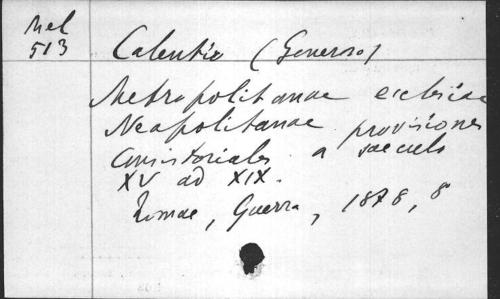 Mel
513
Calentio (Generoso)
Metropolitanae ecclesiae
Neapolitanae provisiones
Consistoriales a saeculo
XV ad XIX.
Romae, Guerra, 1878, 8